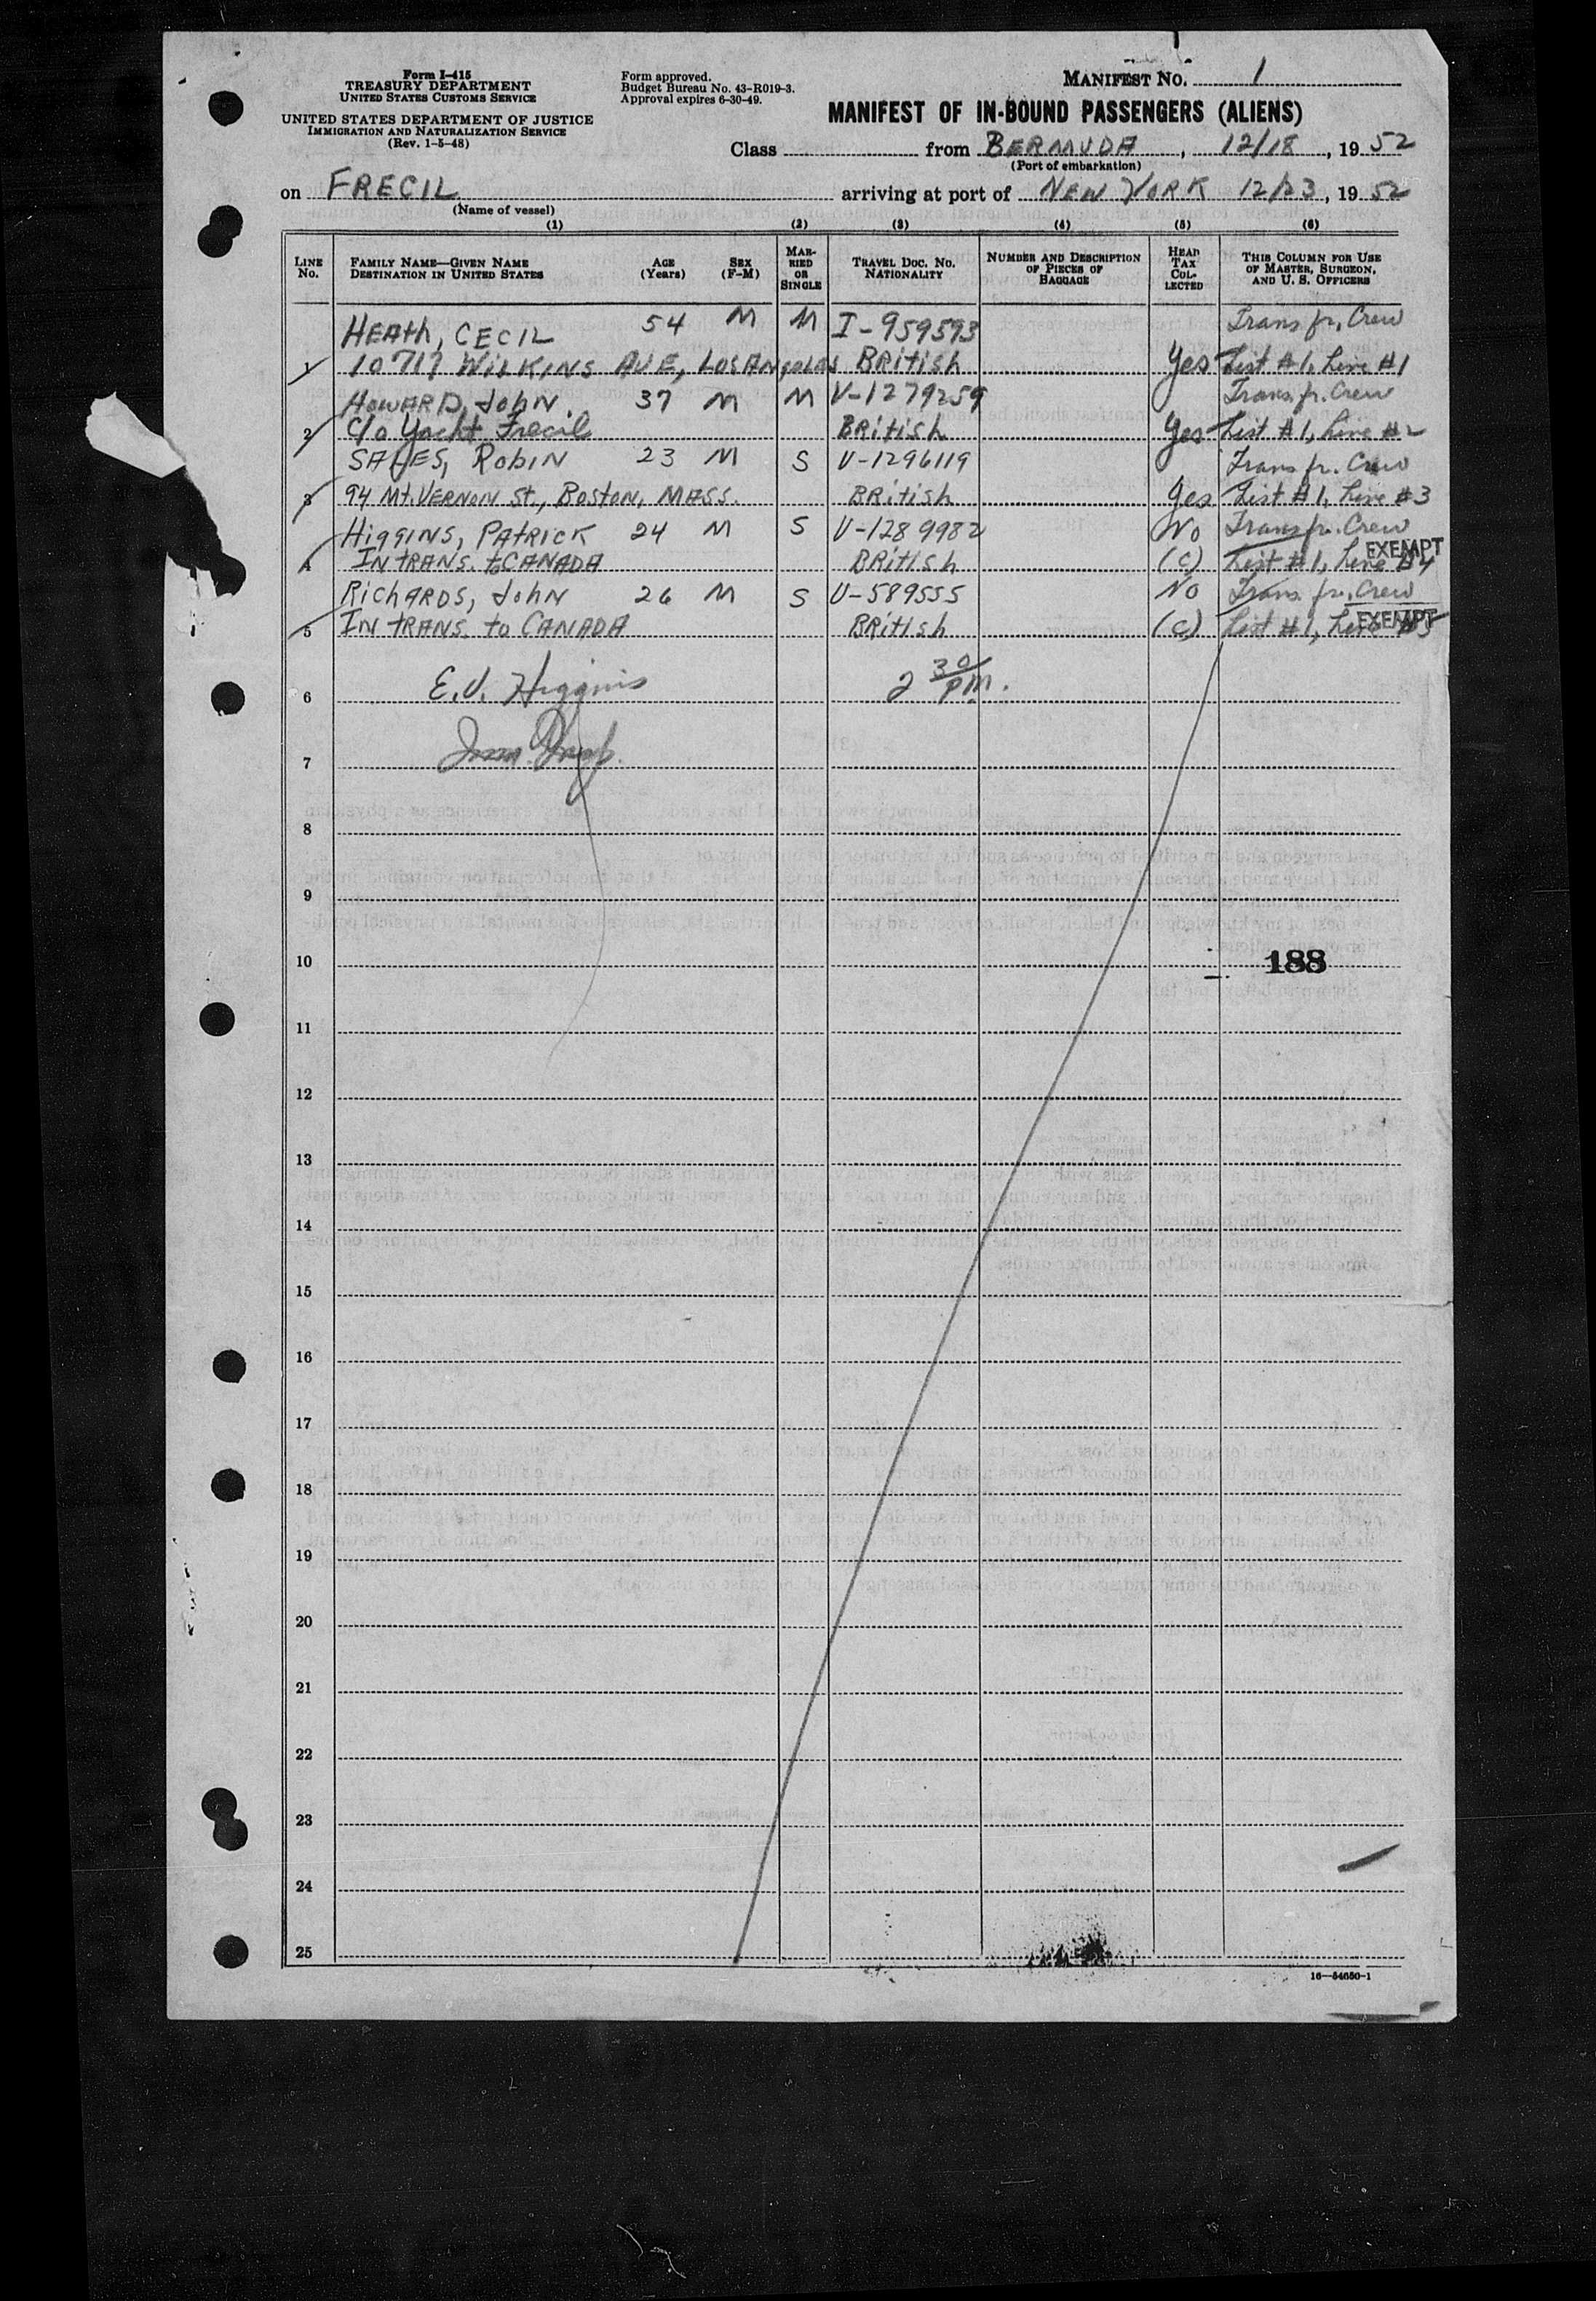 Form I-415
TREASURY DEPARTMENT
UNITED STATES CUSTOMS SERVICE
UNITED STATES DEPARTMENT OF JUSTICE
IMMIGRATION AND NATURALIZATION SERVICE
(Rev. 1-5-48)
Form approved.
Budget Bureau No. 43-R019-3.
Approval expires 6-30-49.
MANIFEST NO. 1
MANIFEST OF IN-BOUND PASSENGERS (ALIENS)
Class from BERMUDA, 12/18, 1952
(Port of embarkation)
on FRECIL arriving at port of NEW YORK 12/23, 1952
(Name of vessel)
(1) (2) (3) (4) (5) (6)
LINE NO. FAMILY NAME—GIVEN NAME DESTINATION IN UNITED STATES AGE (Years) SEX (F-M) MARRIED OR SINGLE TRAVEL DOC. NO. NATIONALITY NUMBER AND DESCRIPTION OF PIECES OF BAGGAGE HEAD TAX COLLECTED THIS COLUMN FOR USE OF MASTER, SURGEON, AND U. S. OFFICERS
HEATH, CECIL 54 M M I-959593 Trans. fr. Crew
1 10717 WILKINS AVE, LOS ANGELES BRITISH Yes List #1, Line #1
HOWARD, JOHN. 37 M M V-1279259 Trans. fr. Crew
2 C/o Yacht Frecil BRITISH Yes List #1, Line #2
ROBIN 23 M S V-1296119 Trans. fr. Crew
3 94 MT. VERNON ST., BOSTON, MASS. BRITISH Yes List #1, Line #3
HIGGINS, PATRICK 24 M S V-1289982 No Trans. fr. Crew
4 IN TRANS. to CANADA BRITISH (C) List #1, Line #4 EXEMPT
RICHARDS, JOHN 26 M S V-589555 No Trans. fr. Crew
5 IN TRANS. to CANADA BRITISH (C) List #1, Line #5 EXEMPT
6 E.V. Higgins 2 30/PM.
7
8
9
10 188
11
12
13
14
15
16
17
18
19
20
21
22
23
24
25
16—54650-1